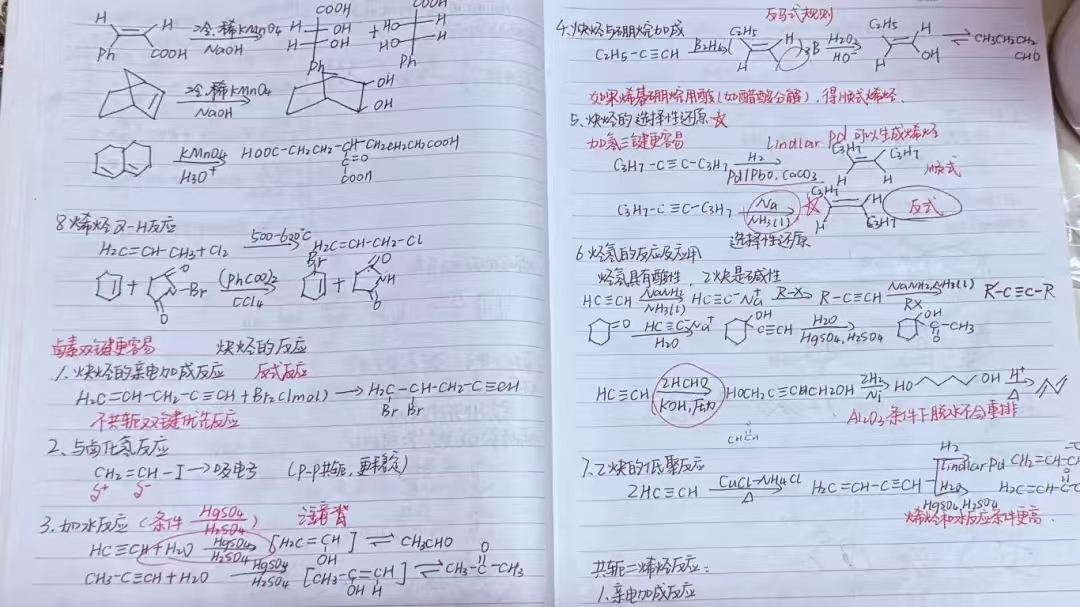 H H 冷.稀KMnO4 NaOH COOH H OH H OH Ph + COOH HO H HO H Ph
Ph COOH
冷.稀KMnO4 NaOH OH OH
KMnO4 H3O+ HOOC-CH2CH2-CH-CH2CH2CH2COOH
C=O
COOH
8 烯烃α-H反应
H2C=CH-CH3+Cl2 500-600℃ H2C=CH-CH2-Cl
+ O N-Br O (PhCOO)2 CCl4 Br + O NH O
卤素双键更容易 炔烃的反应
1.炔烃的亲电加成反应 反式反应
H2C=CH-CH2-C≡CH+Br2(1mol)→H2C-CH-CH2-C≡CH
Br Br
不共轭双键优先反应
2.与卤化氢反应
CH2=CH-I→吸电子 (p-p共轭,更稳定)
δ+ δ-
3.加水反应(条件 HgSO4 H2SO4) 注意背
HC≡CH+H2O HgSO4 H2SO4 [H2C=CH] ⇌ CH3CHO
OH O
CH3-C≡CH+H2O HgSO4 H2SO4 [CH3-C=CH] ⇌ CH3-C-CH3
OH H
反马式规则
4.炔烃与硼烷加成
C2H5-C≡CH B2H6 ( C2H5 H H )3B H2O2 HO- C2H5 H H OH ⇌ CH3CH2CH2
CHO
如果烯基硼烷用酸(如醋酸分解),得顺式烯烃.
5.炔烃的选择性还原
加氢三键更容易 Lindlar Pd 可以生成烯烃
C3H7-C≡C-C3H7 H2 Pd/PbO,CaCO3 C3H7 C3H7 H H 顺式
C3H7-C≡C-C3H7 Na NH3(l) C3H7 H H C3H7 反式
选择性还原
6 炔氢的反应及应用
炔氢具有酸性,乙炔是碱性
HC≡CH NaNH2 NH3(l) HC≡C-Na+ R-X R-C≡CH NaNH2,NH3(l) RX R'-C≡C-R
=O HC≡C-Na+ H2O OH C≡CH H2O HgSO4,H2SO4 OH O C-CH3
HC≡CH 2HCHO KOH,压力 HOCH2C≡CCH2OH 2H2 Ni HO OH H+
Al2O3条件下脱水不会重排
7.乙炔的低聚反应
2HC≡CH CuCl-NH4Cl △ H2C=CH-C≡CH H2 Lindlar Pd CH2=CH-C
H2O HgSO4,H2SO4 H2C=CH-C-C
烯烃和水反应条件更高.
共轭二烯烃反应:
1.亲电加成反应